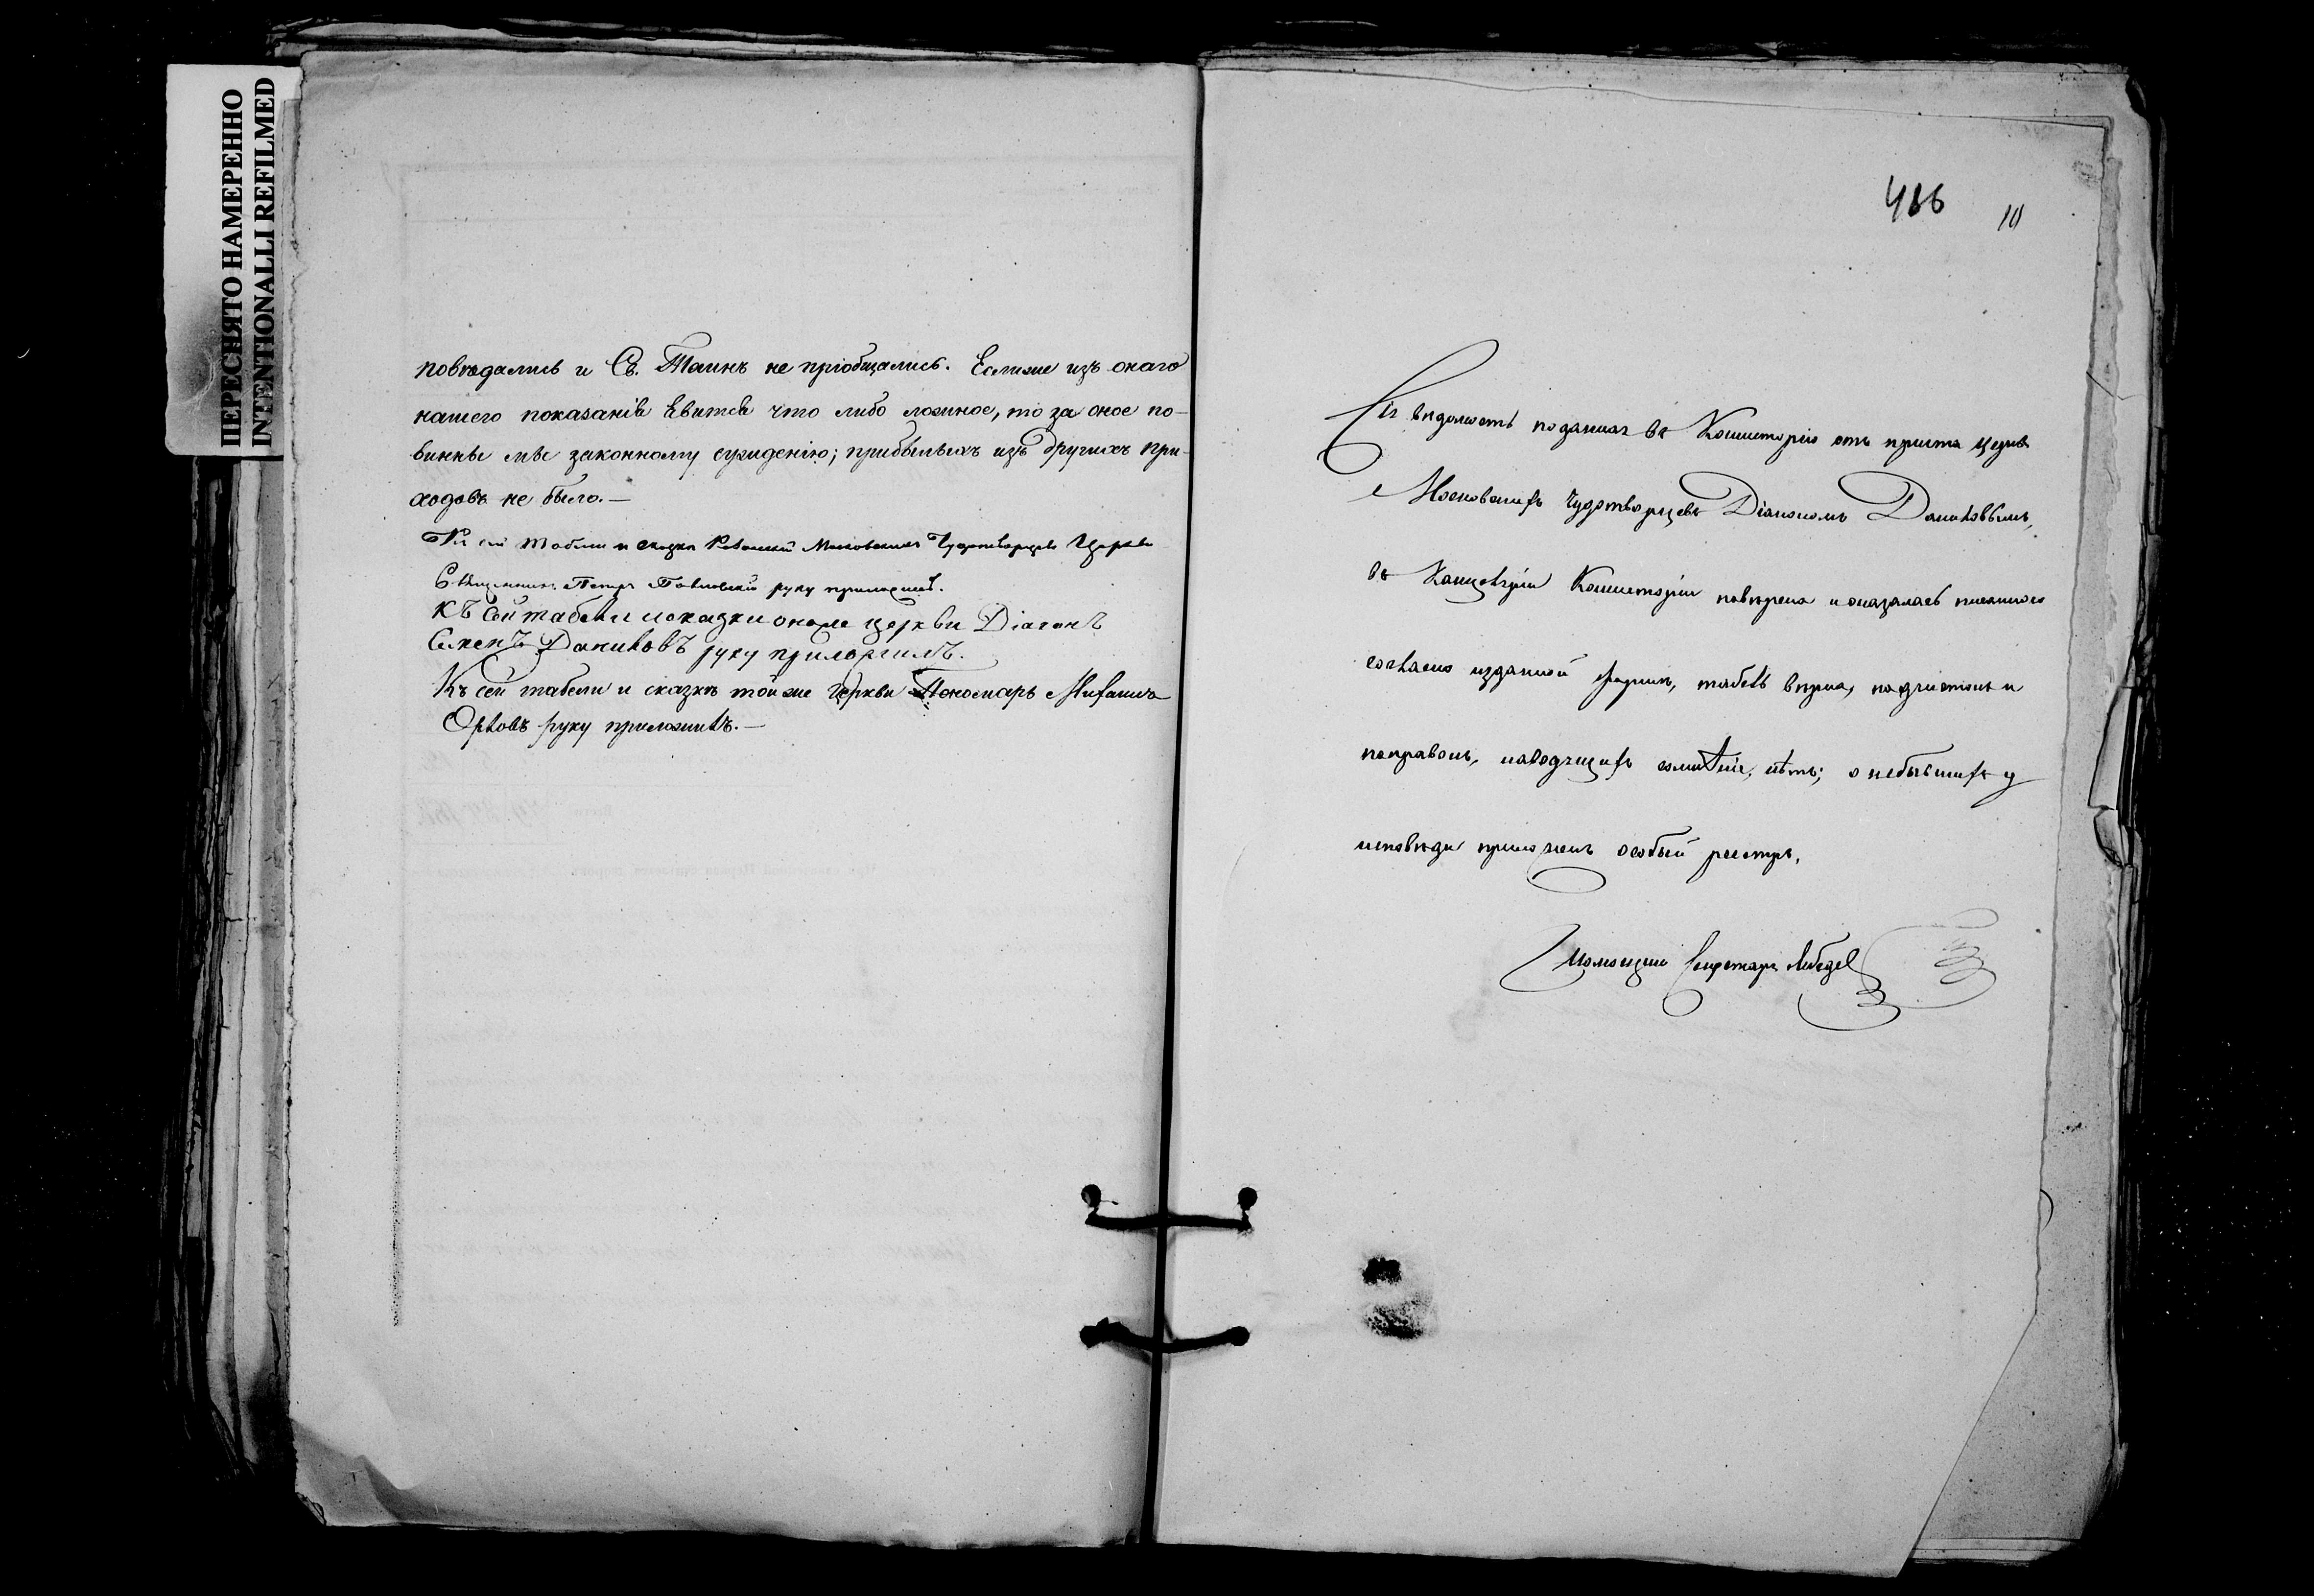 ПЕРЕСНЯТО НАМЕРЕННО
INTENTIONALLI REFILMED
повѣдались и Св. Таинъ не пріобщались. Естьлиже изъ онаго
нашего показанія явится что либо ложное, то за оное по-
винны мы законному сужденію; прибылыхъ изъ другихъ при-
ходовъ не было.—
Къ сей табели и сказкѣ Московскихъ Чудотворцевъ Церкви
Священникъ Петръ Павловскій руку приложилъ.
Къ сей табели и сказки оноже церкви Діаконъ
Семенъ Даниловъ руку приложилъ.
Къ сей табели и сказкѣ той же Церкви Пономарь Михаилъ
Орловъ руку приложилъ.—
486 10
Сія вѣдомость поданная въ Консисторію отъ причта церкв
Московскихъ Чудотворцевъ Діакономъ Даниловымъ,
въ Канцеляріи Консисторіи повѣрена и оказалась писанною
согласно изданной формѣ, табель вѣрна, подчистокъ и
поправокъ, наводящихъ сомнѣніе, нѣтъ; о небывшихъ у
исповѣди приложенъ особый реестръ.
Помощникъ Секретаря Лебедев